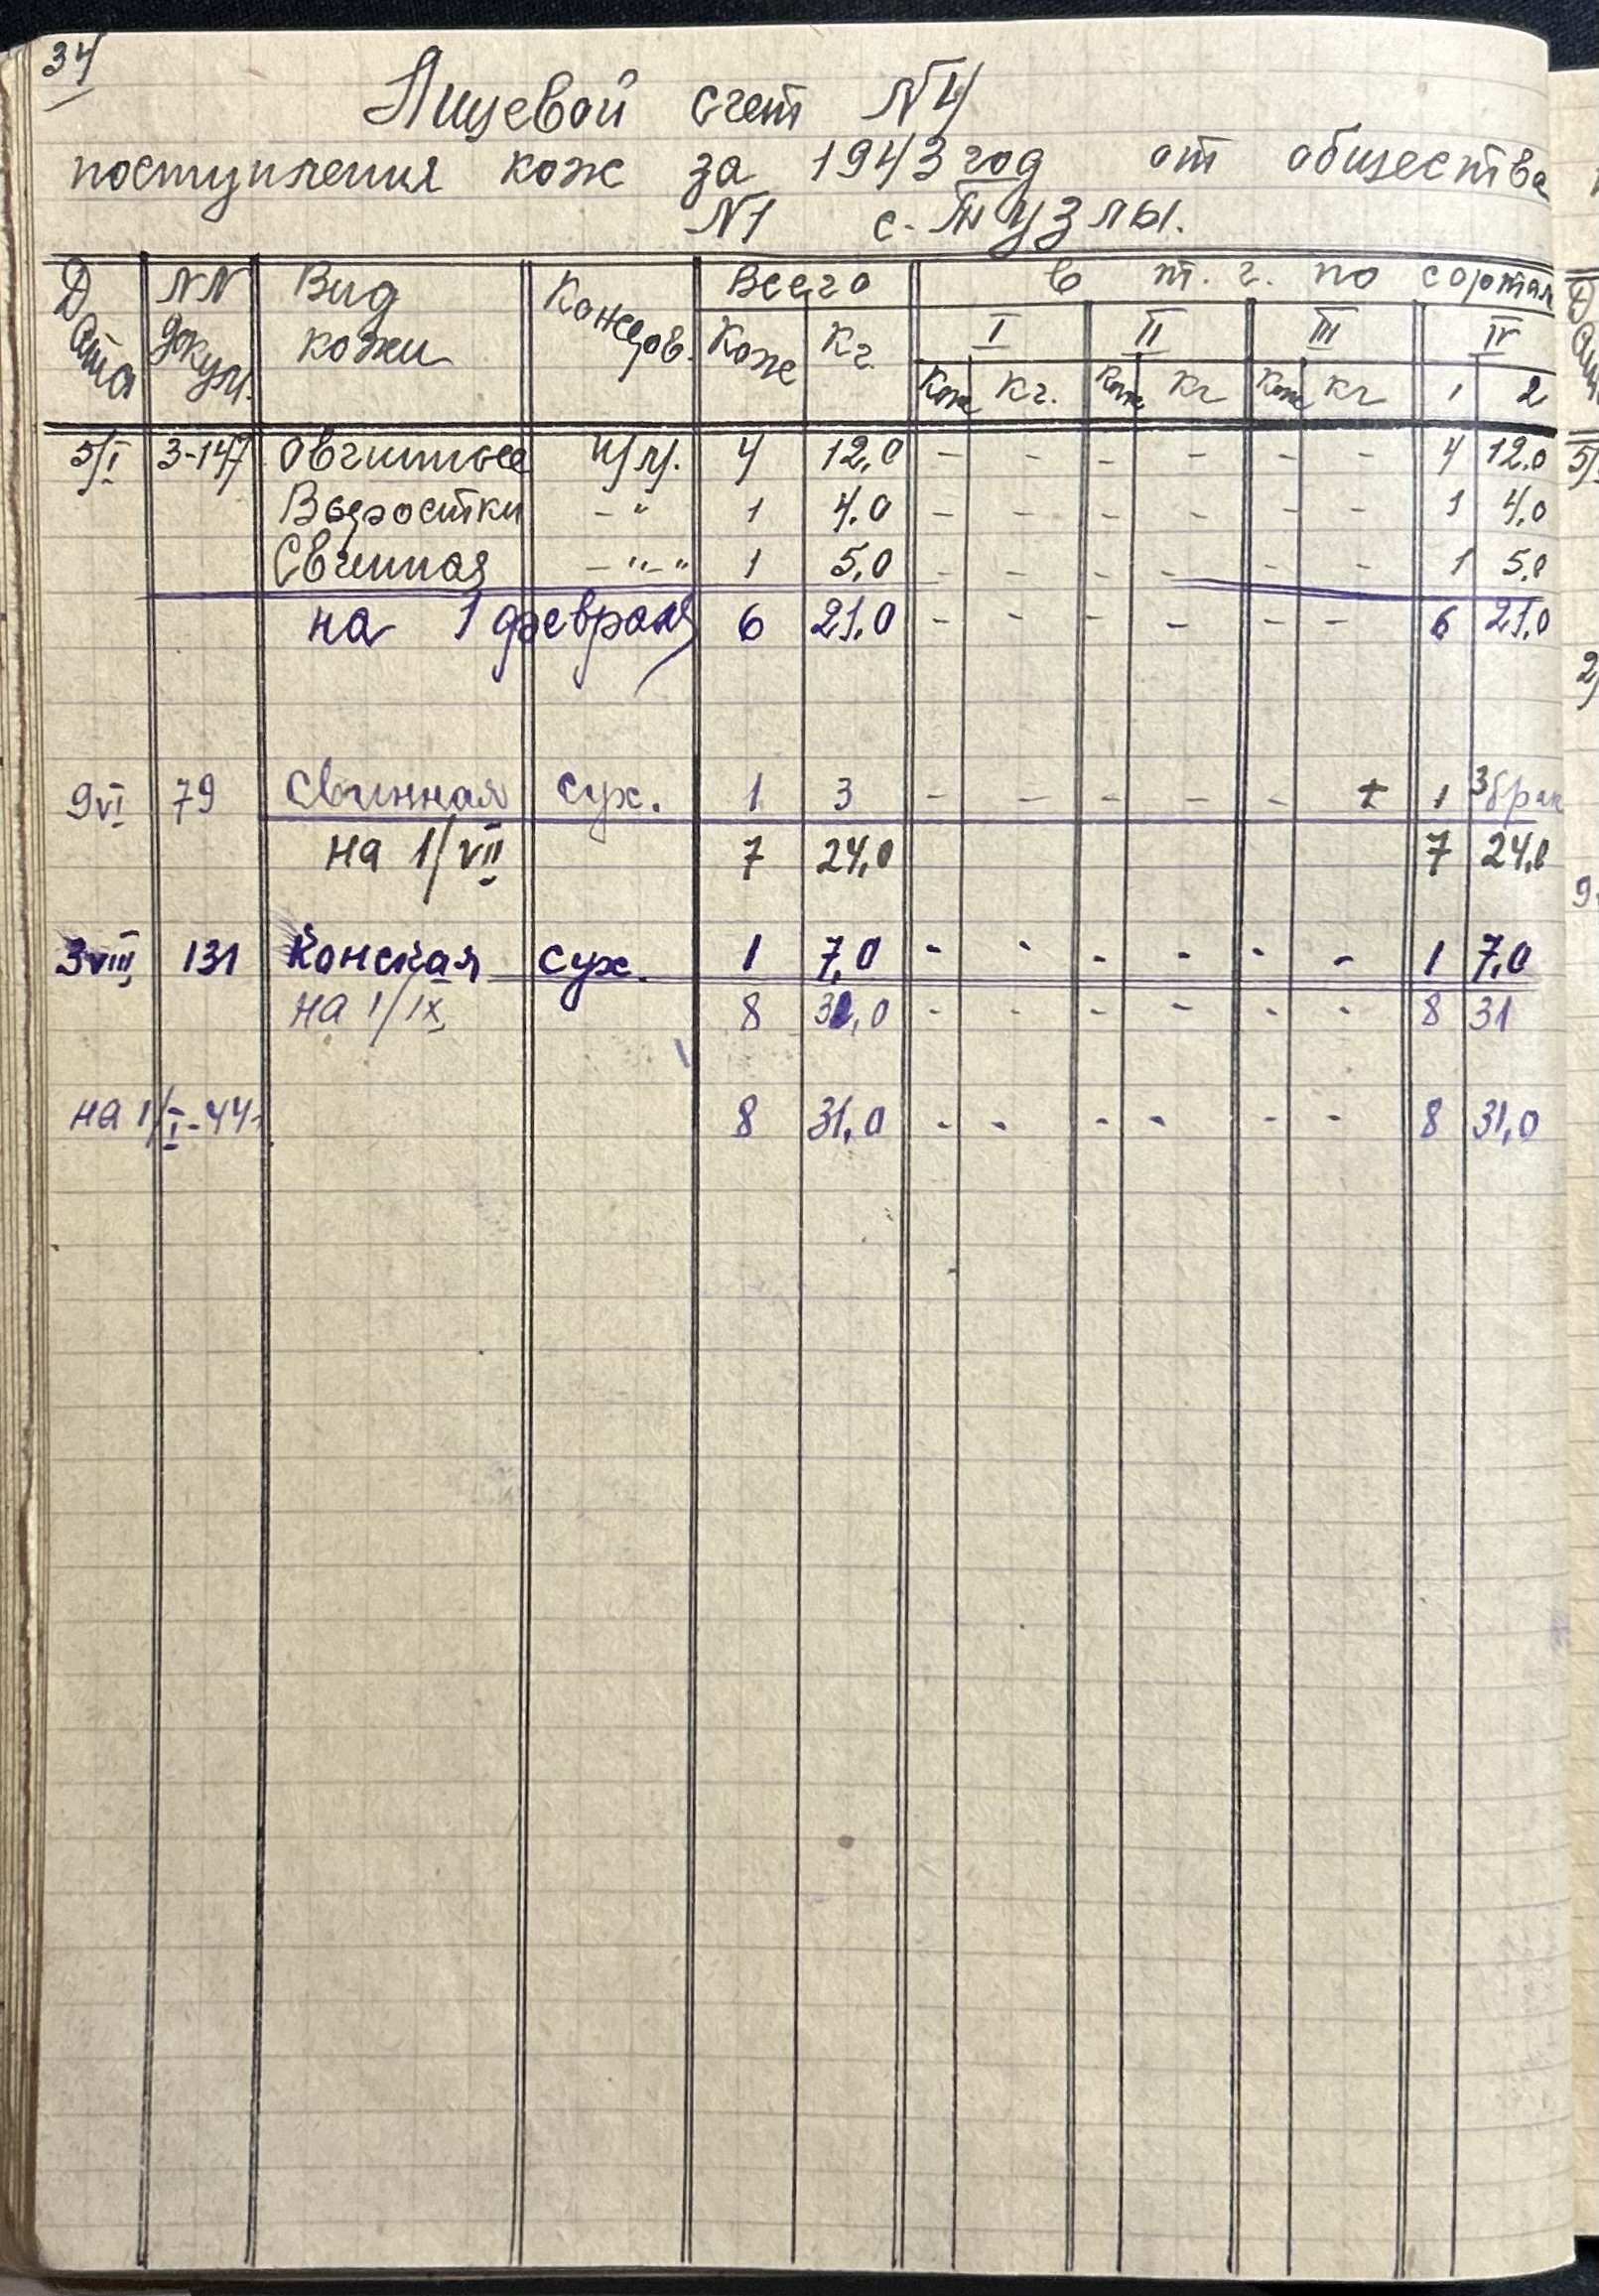 34
Лицевой счет N4
поступления кож за 1943 год от общества
N1 с. Тузлы.
Дата NN докум. Вид кожи Консров. Всего в т. ч. по сортам
Кож Кг. I II III IV
Кож Кг. Кож Кг Кож Кг 1 2
5/I 3-147 Овчинные 4 12,0 - - - - - - 4 12.0
Выростки -"- 1 4.0 - - - - - - 1 4,0
Свинная -"-" 1 5,0 - - - - - - 1 5,0
на 1 февраля 6 21,0 - - - - - - 6 21,0
9VI 79 Свинная сух. 1 3 - - - - - + 1 3 брак
на 1/VII 7 24,0 7 24,0
3VIII 131 Конская сух. 1 7,0 - - - - - - 1 7,0
на 1/IX 8 31,0 - - - - - - 8 31
на 1/I-44 8 31,0 - - - - - - 8 31,0